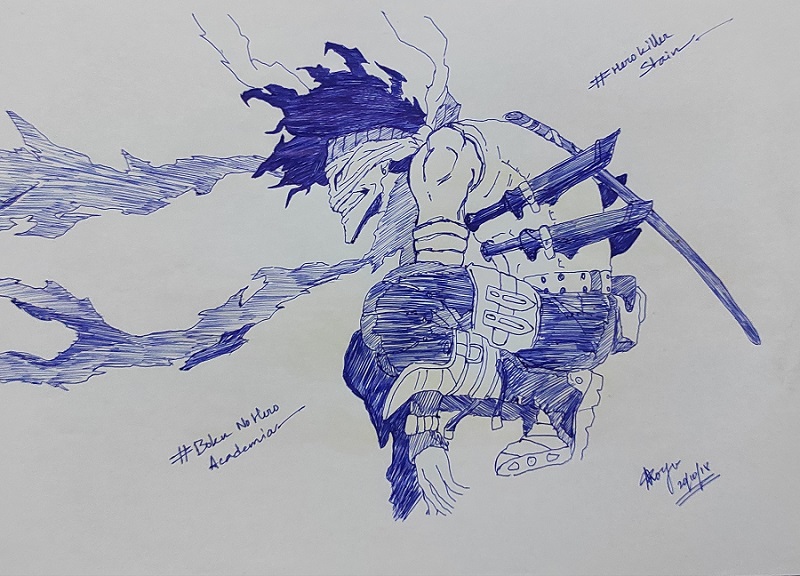 #Herokiller
Stain
#Boku No Hero
Academia
20/10/18